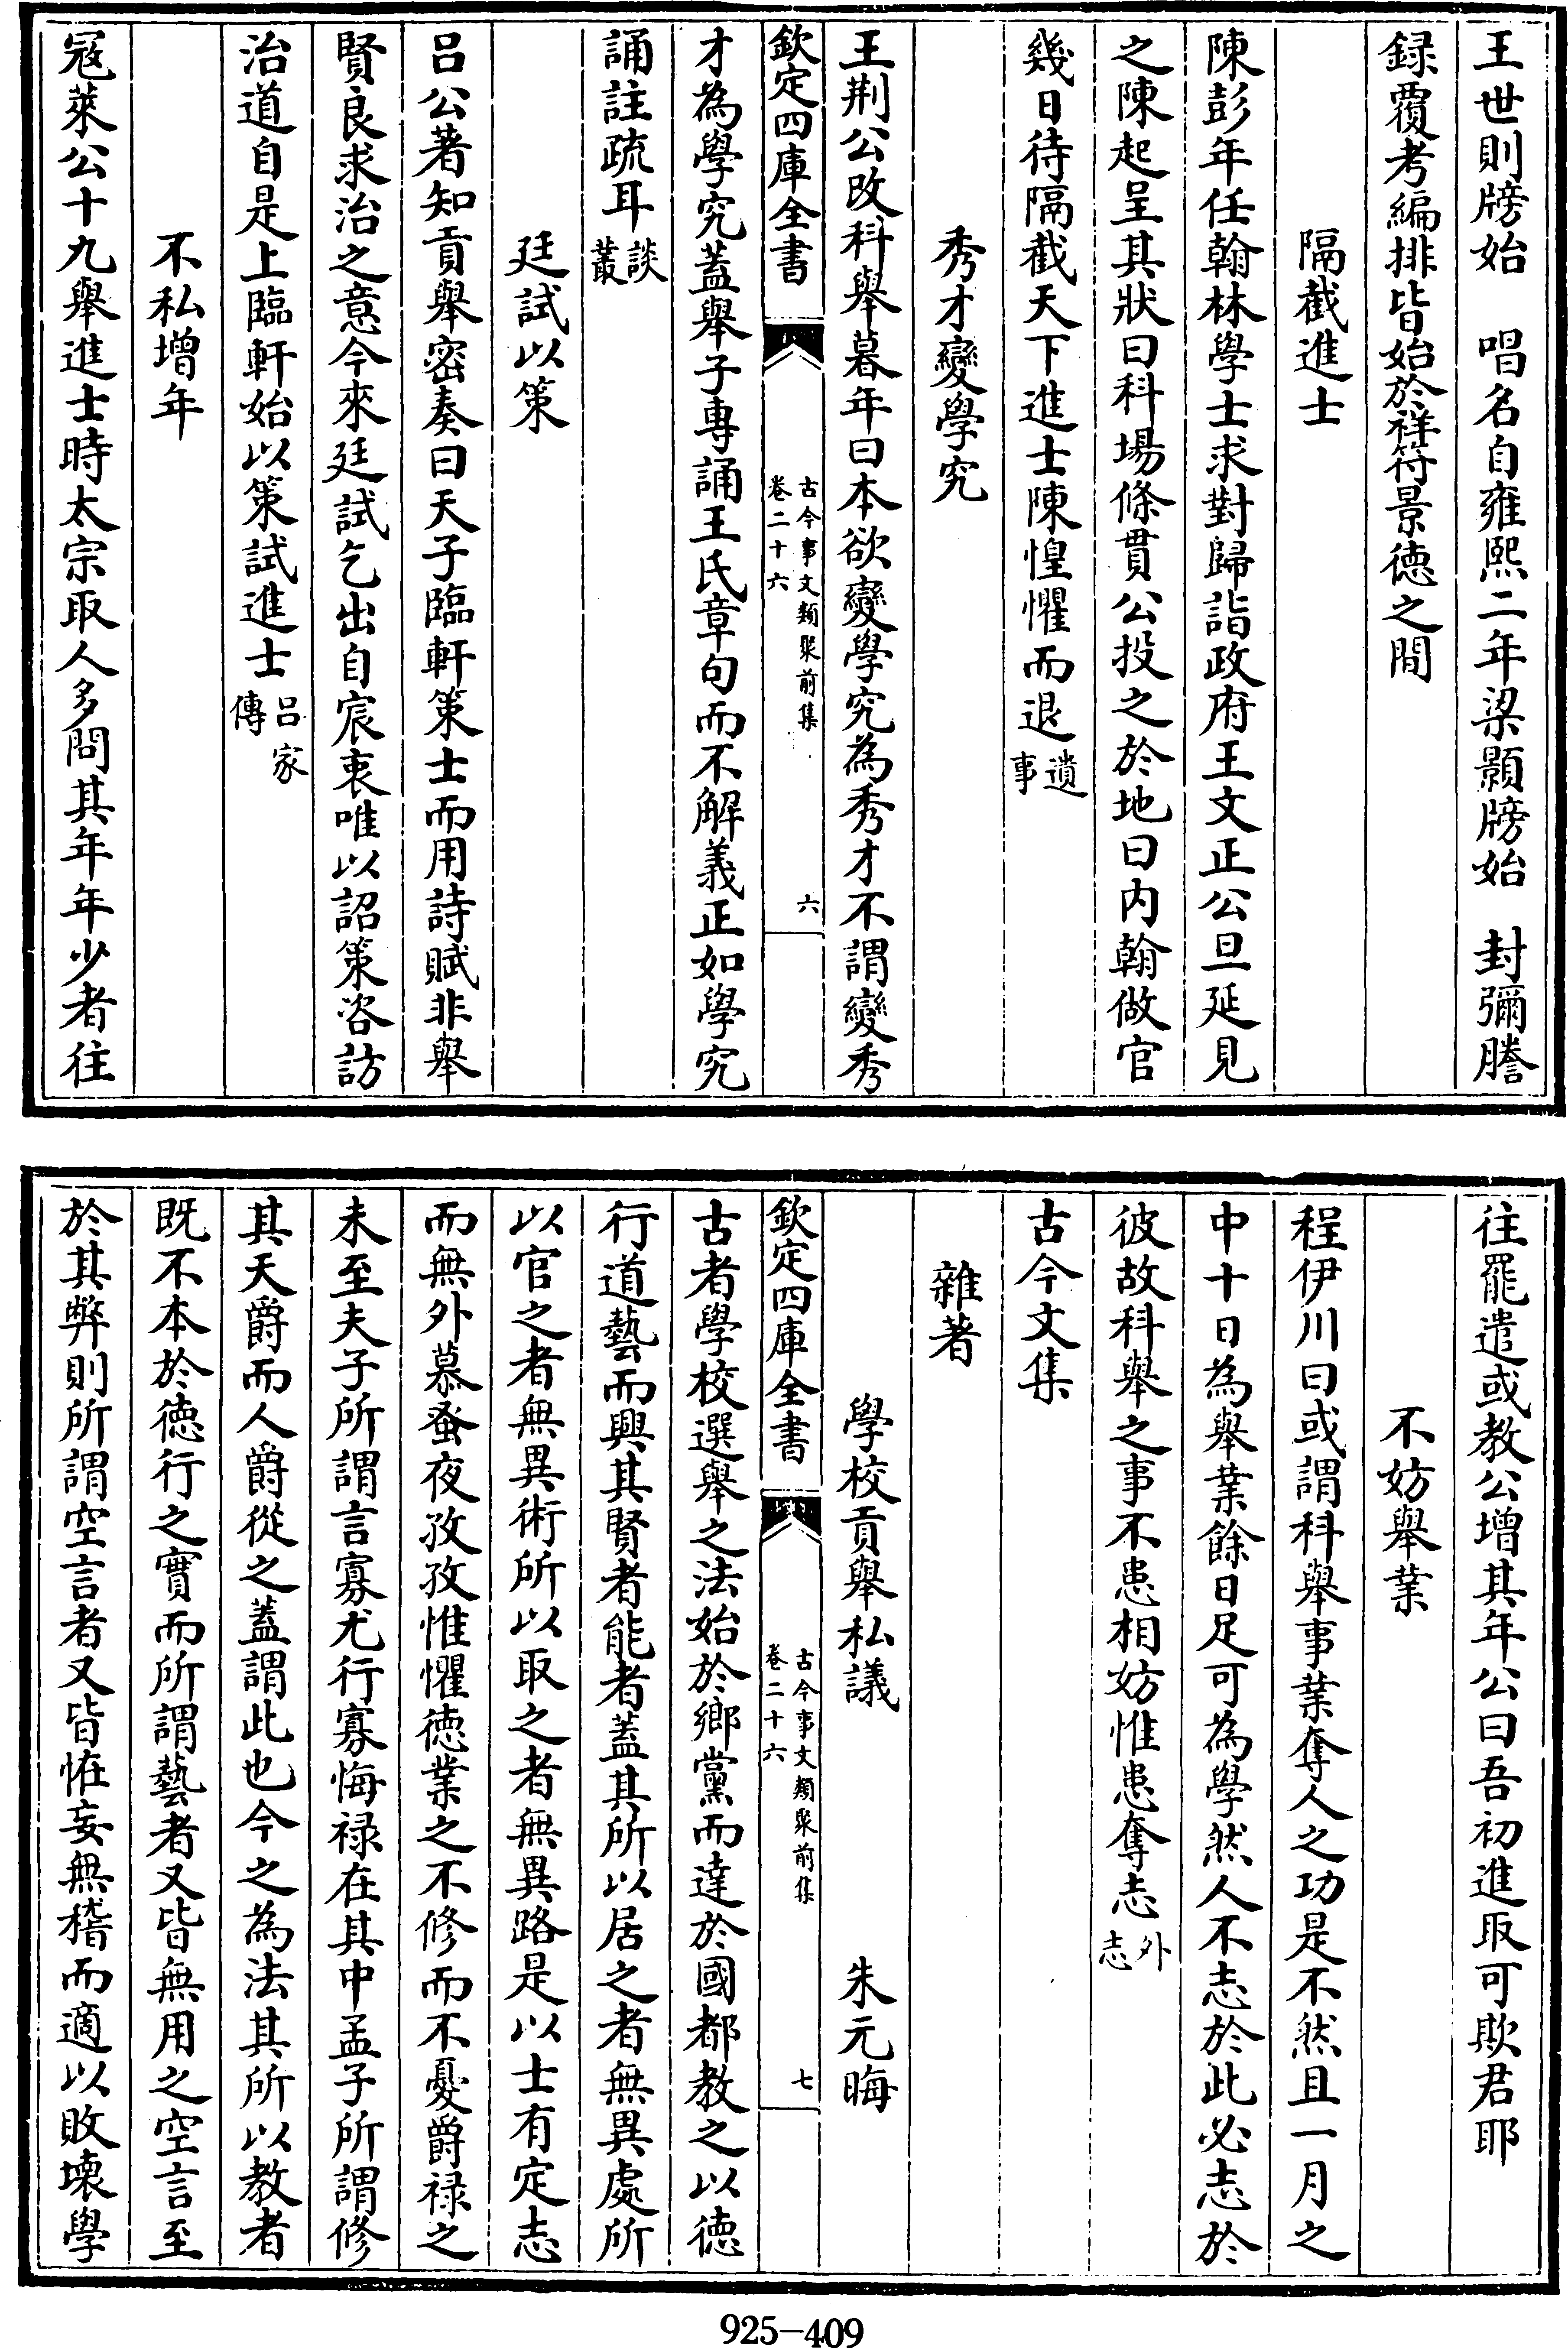 王世則牓始　唱名自雍熙二年梁顥牓始　封彌謄
録覆考編排皆始於祥符景徳之間
隔截進士
陳彭年任翰林學士求對歸詣政府王文正公旦延見
之陳起呈其狀曰科場條貫公投之於地曰内翰做官
幾日待隔截天下進士陳惶懼而退遺事
秀才變學究
王荆公改科舉暮年曰本欲變學究為秀才不謂變秀
欽定四庫全書
古今事文類聚前集
卷二十六
六
才為學究蓋舉子專誦王氏章句而不解義正如學究
誦註疏耳談叢
廷試以策
吕公著知貢舉密奏曰天子臨軒策士而用詩賦非舉
賢良求治之意今來廷試乞出自宸衷唯以詔策咨訪
治道自是上臨軒始以策試進士吕家傳
不私增年
冦萊公十九舉進士時太宗取人多問其年年少者往
往罷遣或教公增其年公曰吾初進取可欺君耶
不妨舉業
程伊川曰或謂科舉事業奪人之功是不然且一月之
中十日為舉業餘日足可為學然人不志於此必志於
彼故科舉之事不患相妨惟患奪志外志
古今文集
雜著
學校貢舉私議　朱元晦
欽定四庫全書
古今事文類聚前集
卷二十六
七
古者學校選舉之法始於鄉黨而達於國都教之以徳
行道藝而興其賢者能者蓋其所以居之者無異處所
以官之者無異術所以取之者無異路是以士有定志
而無外慕蚤夜孜孜惟懼徳業之不修而不憂爵禄之
未至夫子所謂言寡尤行寡悔禄在其中孟子所謂修
其天爵而人爵從之蓋謂此也今之為法其所以教者
既不本於徳行之實而所謂藝者又皆無用之空言至
於其弊則所謂空言者又皆怪妄無稽而適以敗壞學
925-409